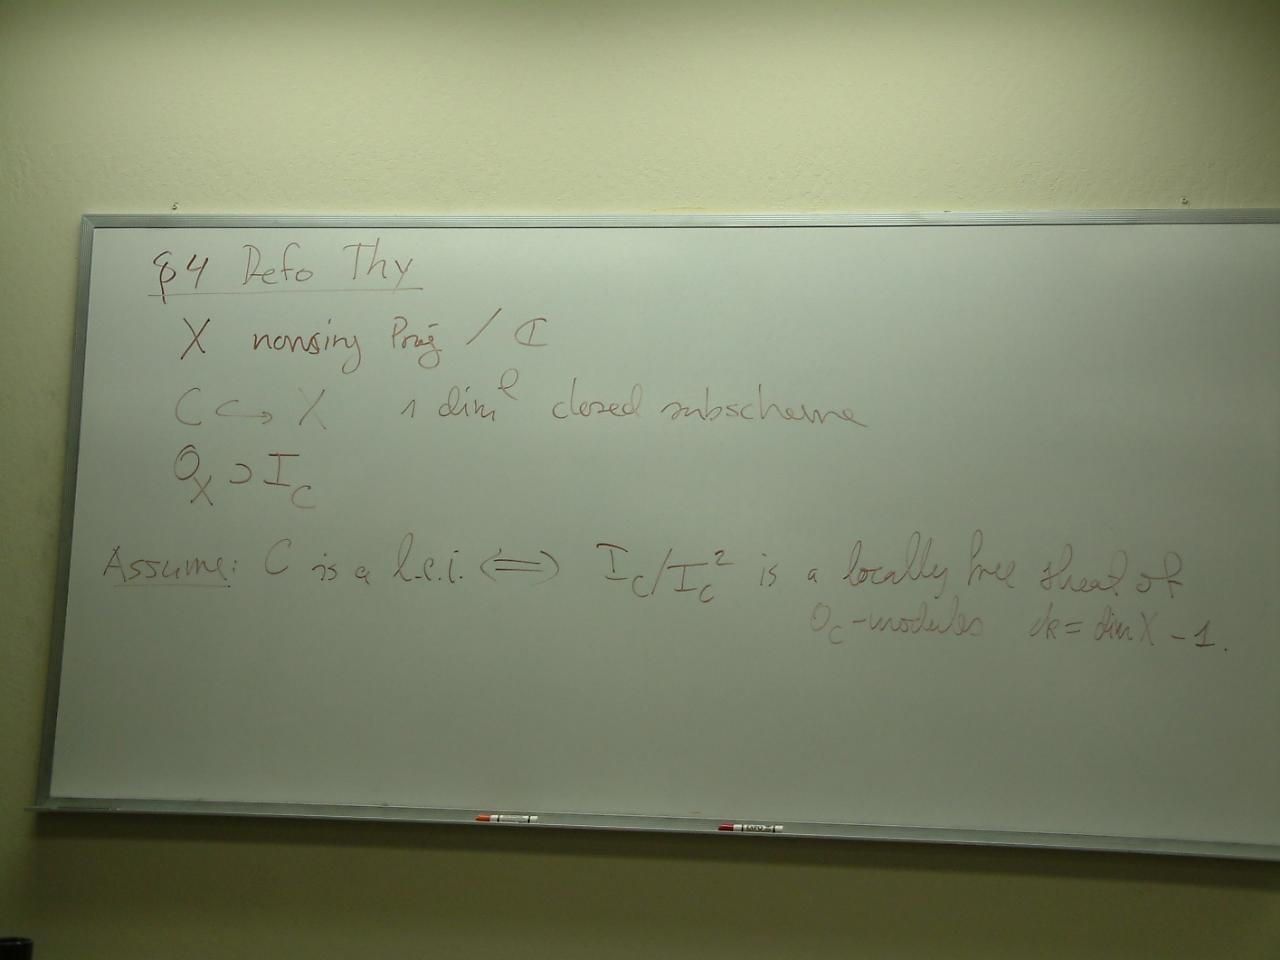 §4 Defo Thy
X nonsing Proj / ℂ
C ↪ X 1 dimˡ closed subscheme
O_X ⊃ I_C
Assume: C is a l.c.i. ⟺ I_C/I_C² is a locally free sheaf of
O_C-modules rk = dim X - 1.